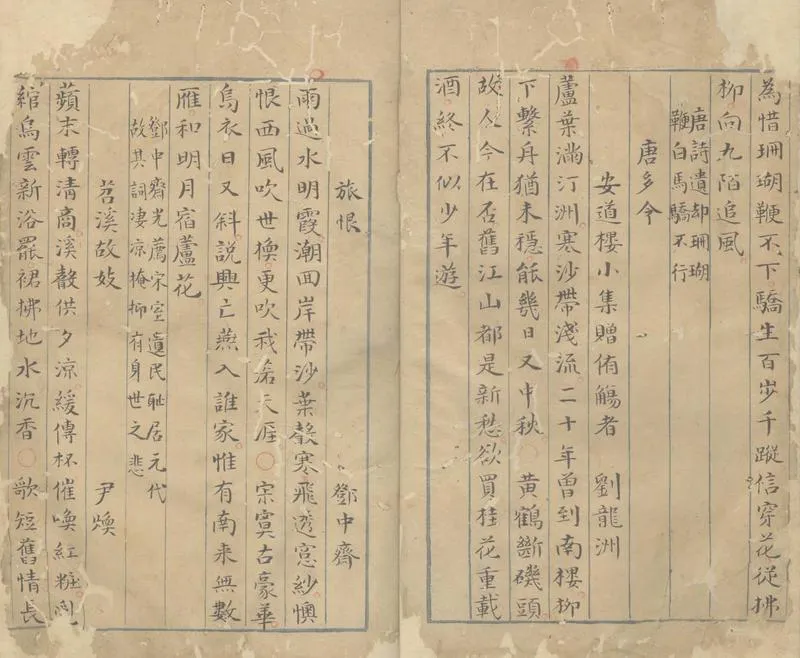 為惜珊瑚鞭不下驕生百步千蹤信穿花從拂
柳向九陌追風
唐詩遺却珊瑚
鞭白馬驕不行
唐多令
安道樓小集贈侑觴者 劉龍洲
蘆葉滿汀洲寒沙帶淺流二十年曾到南樓柳
下繫舟猶未穩能幾日又中秋○黃鶴斷磯頭
故人今在否舊江山都是新愁欲買桂花重載
酒終不似少年遊
旅恨 鄧中齊
雨過水明霞潮回岸帶沙葉聲寒飛透窓紗懊
恨西風吹世換更吹我落天涯○寂寞古豪華
烏衣日又斜說興亡燕入誰家惟有南来無數
雁和明月宿蘆花
鄧中齊光薦宋室遺民耻居元代
故其詞凄凉掩抑有身世之悲
苕溪故妓 尹煥
蘋末轉清商溪聲供夕凉緩傳杯催喚紅粧亂
綰烏雲新浴罷裙拂地水沉香○歌短舊情長